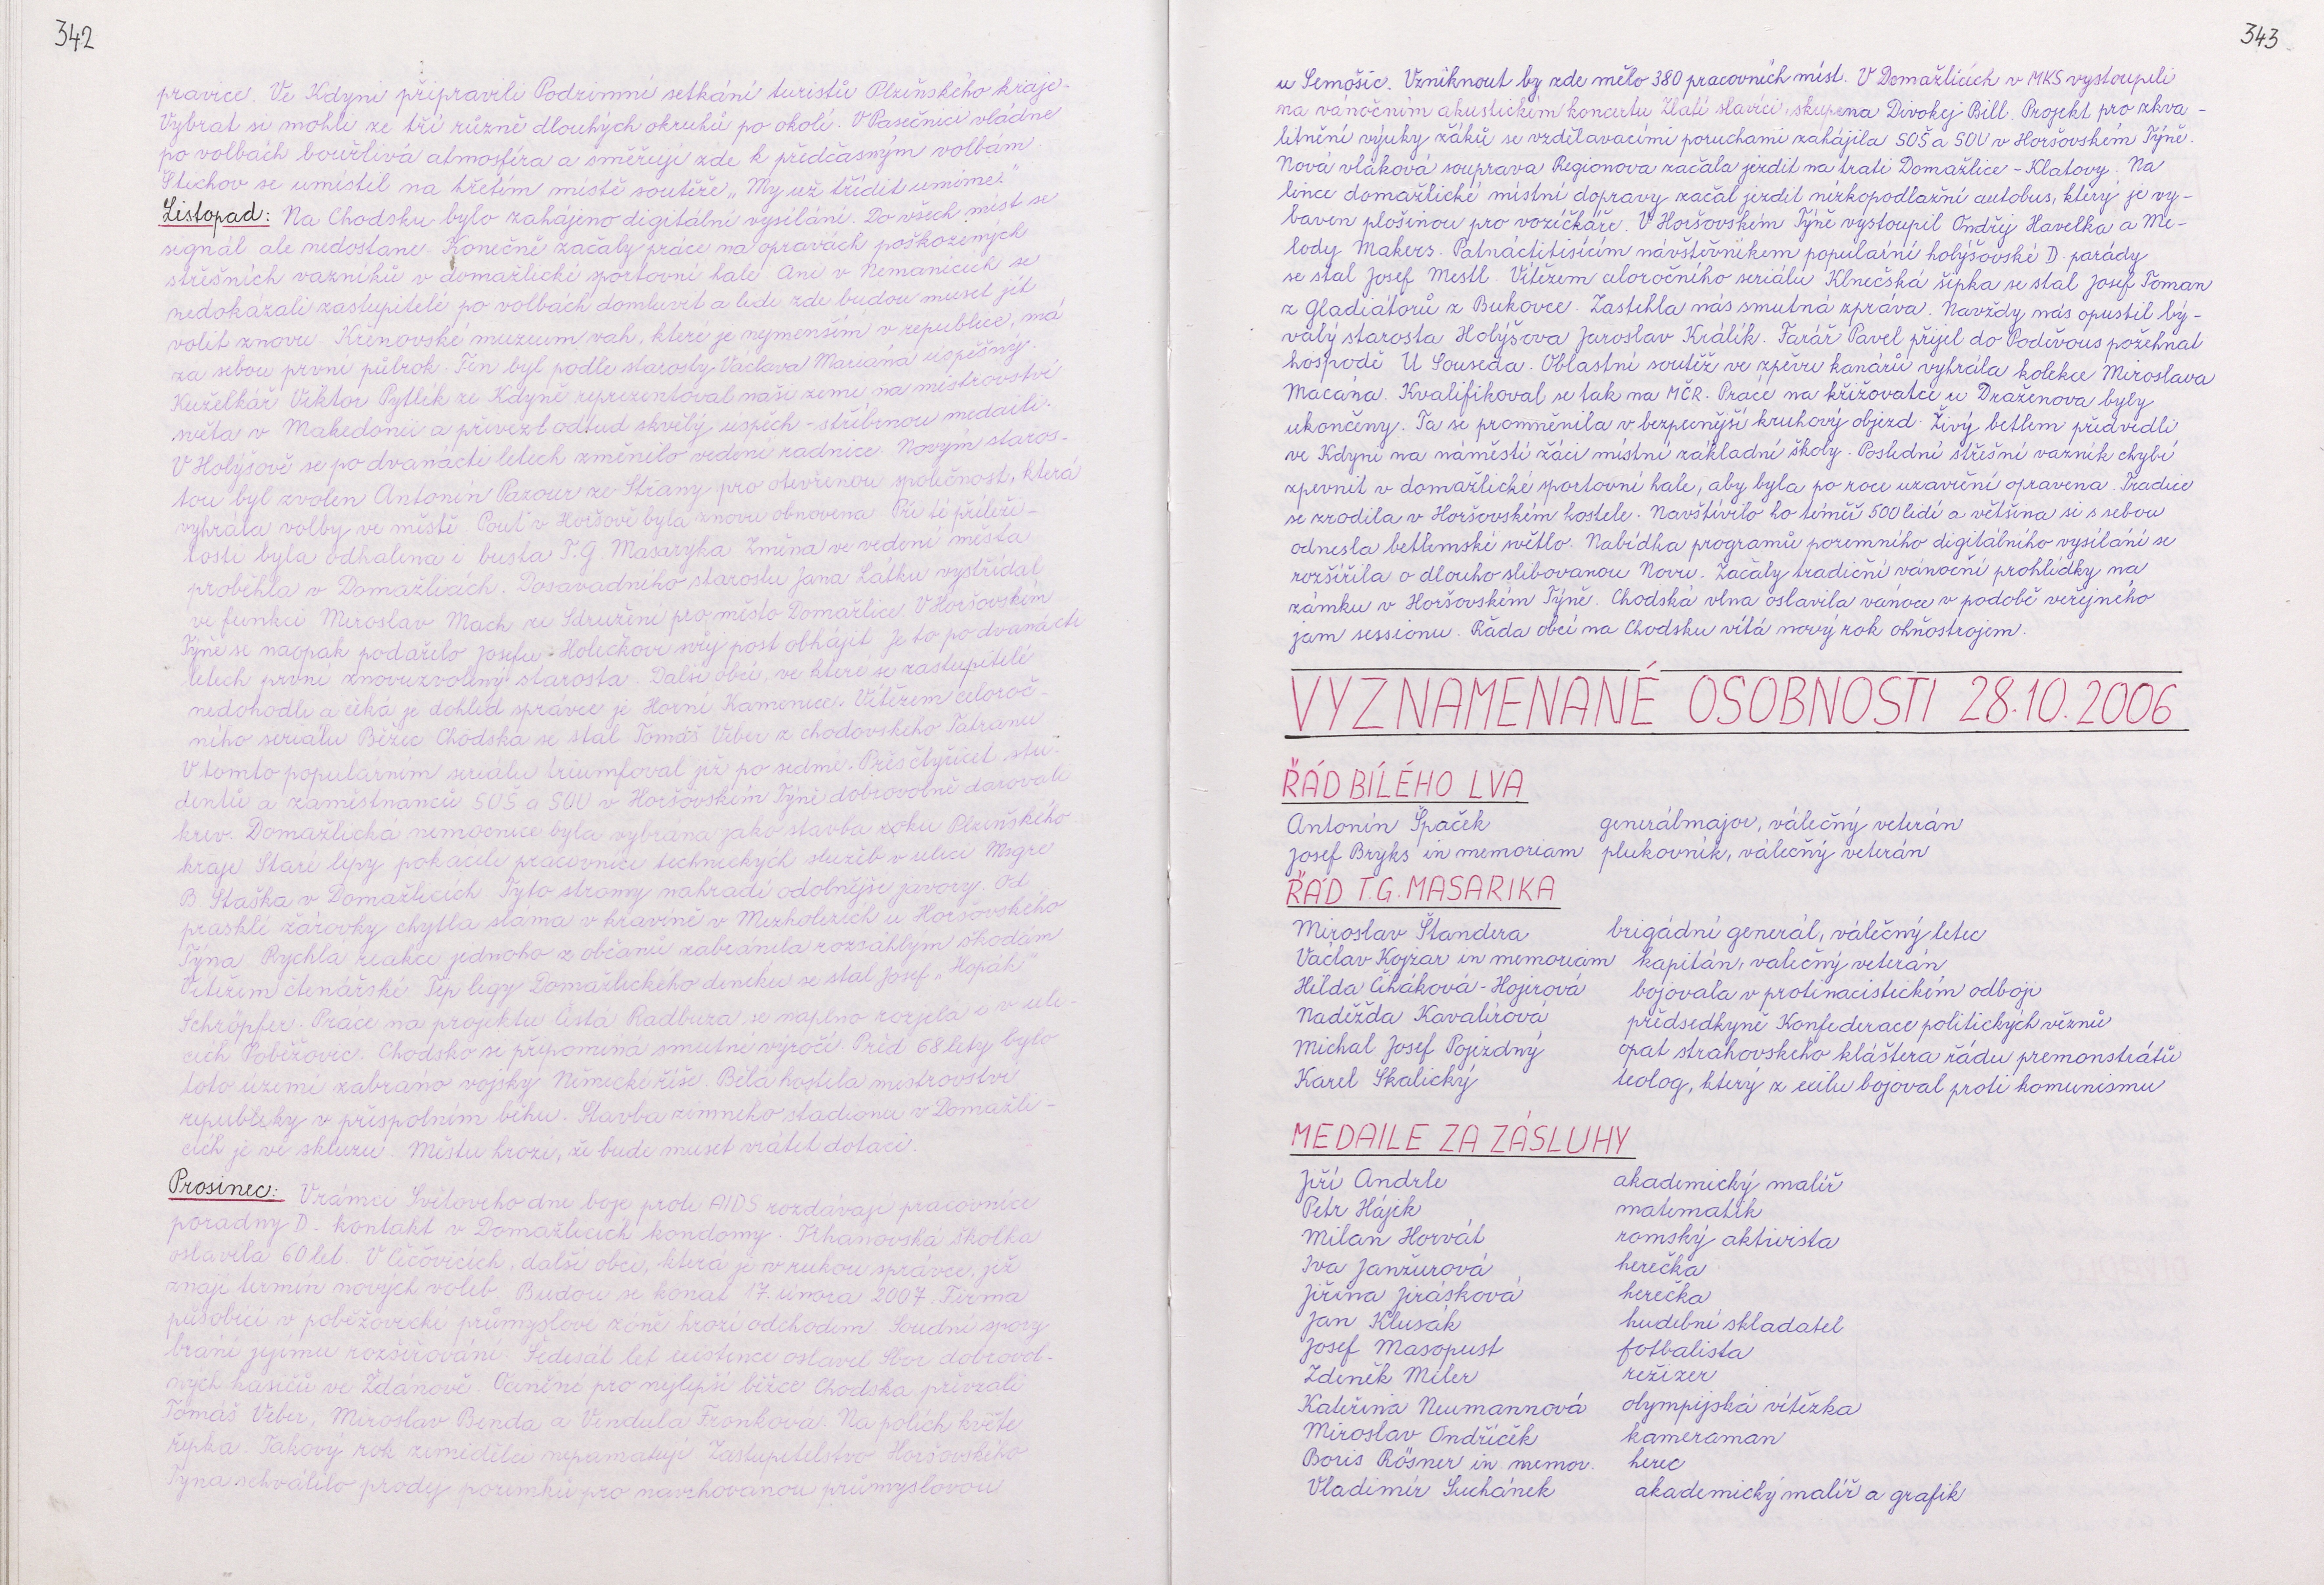 342
pravice. Ve Kdyni připravili Podzimní setkání turistů Plzeňského kraje.
Vybrat si mohli ze tří různě dlouhých okruhů po okolí. V Pasečnici vládne
po volbách bouřlivá atmosféra a směřují zde k předčasným volbám.
Štichov se umístil na třetím místě soutěže „My už třídit umíme."
Listopad: Na Chodsku bylo zahájeno digitální vysílání. Do všech míst se
signál ale nedostane. Konečně začaly práce na opravách poškozených
střešních vazníků v domažlické sportovní hale. Ani v Nemanicích se
nedokázali zastupitelé po volbách domluvit a lidé zde budou muset jít
volit znovu. Křenovské muzeum vah, které je nejmenším v republice, má
za sebou první půlrok. Ten byl podle starosty Václava Mariana úspěšný.
Kuželkář Viktor Pytlík ze Kdyně reprezentoval naši zemi na mistrovství
světa v Makedonii a přivezl odtud skvělý úspěch - stříbrnou medaili.
V Holýšově se po dvanácti letech změnilo vedení radnice. Novým staros-
tou byl zvolen Antonín Pazour ze Strany pro otevřenou společnost, která
vyhrála volby ve městě. Pouť v Horšově byla znovu obnovena. Při té příleži-
tosti byla odhalena i busta T.G. Masaryka. Změna ve vedení města
proběhla v Domažlicích. Dosavadního starostu Jana Látku vystřídal
ve funkci Miroslav Mach ze Sdružení pro město Domažlice. V Horšovském
Týně se naopak podařilo Josefu Holečkovi svůj post obhájit. Je to po dvanácti
letech první znovuzvolený starosta. Další obcí, ve které se zastupitelé
nedohodli a čeká je dohled správce je Horní Kamenice. Vítězem celoroč-
ního seriálu Běžec Chodska se stal Tomáš Veber z chodovského Tatranu.
V tomto populárním seriálu triumfoval již po sedmé. Přes čtyřicet stu-
dentů a zaměstnanců SOŠ a SOU v Horšovském Týně dobrovolně darovali
krev. Domažlická nemocnice byla vybrána jako stavba roku Plzeňského
kraje. Staré lípy pokáceli pracovníci technických služeb v ulici Msgre
B. Staška v Domažlicích. Tyto stromy nahradí odolnější javory. Od
prasklé žárovky chytla sláma v kravíně v Mezholezích u Horšovského
Týna. Rychlá reakce jednoho z občanů zabránila rozsáhlým škodám.
Vítězem čtenářské Tip ligy Domažlického deníku se stal Josef „Hopák"
Schröpfer. Práce na projektu Čistá Radbuza se naplno rozjela i v uli-
cích Poběžovic. Chodsko si připomíná smutné výročí. Před 68 lety bylo
toto území zabráno vojsky Německé říše. Bělá hostila mistrovství
republiky v přespolním běhu. Stavba zimního stadionu v Domažli-
cích je ve skluzu. Městu hrozí, že bude muset vrátit dotaci.
Prosinec: V rámci Světového dne boje proti AIDS rozdávají pracovnice
poradny D- kontakt v Domažlicích kondomy. Trhanovská školka
oslavila 60 let. V Čečovicích, další obci, která je v rukou správce, již
znají termín nových voleb. Budou se konat 17. února 2007. Firma
působící v poběžovické průmyslové zóně hrozí odchodem. Soudní spory
brání jejímu rozšiřování. Šedesát let existence oslavil Sbor dobrovol-
ných hasičů ve Ždánově. Ocenění pro nejlepší běžce Chodska převzali
Tomáš Veber, Miroslav Benda a Vendula Fronková. Na polích kvete
řepka. Takový rok zemědělci nepamatují. Zastupitelstvo Horšovského
Týna schválilo prodej pozemků pro navrhovanou průmyslovou
343
u Semošic. Vzniknout by zde mělo 380 pracovních míst. V Domažlicích v MKS vystoupili
na vánočním akustickém koncertu Zlatí slavíci, skupena Divokej Bill. Projekt pro zkva-
litnění výuky žáků se vzdělavacími poruchami zahájila SOŠ a SOU v Horšovském Týně.
Nová vlaková souprava Regionova začala jezdit na trati Domažlice - Klatovy. Na
lince domažlické místní dopravy začal jezdit nízkopodlažní autobus, který je vy-
baven plošinou pro vozíčkáře. V Horšovském Týně vystoupil Ondřej Havelka a Me-
lody Makers. Patnáctitisícím návštěvníkem populární holýšovské D. parády
se stal Josef Mestl. Vítězem celoročního seriálu Klnečská šipka se stal Josef Toman
z Gladiátorů z Bukovce. Zastihla nás smutná zpráva. Navždy nás opustil bý-
valý starosta Holýšova Jaroslav Králík. Farář Pavel přijel do Poděvous požehnat
hospodě U Souseda. Oblastní soutěž ve zpěvu kanárů vyhrála kolekce Miroslava
Macána. Kvalifikoval se tak na MČR. Práce na křižovatce u Draženova byly
ukončeny. Ta se proměnila v bezpečnější kruhový objezd. Živý betlém předvedli
ve Kdyni na náměstí žáci místní základní školy. Poslední střešní vazník chybí
zpevnit v domažlické sportovní hale, aby byla po roce uzavření opravena. Tradice
se zrodila v Horšovském kostele. Navštívilo ho téměř 500 lidí a většina si s sebou
odnesla betlémské světlo. Nabídka programů pozemního digitálního vysílání se
rozšířila o dlouho slibovanou Novu. Začaly tradiční vánoční prohlídky na
zámku v Horšovském Týně. Chodská vlna oslavila vánoce v podobě veřejného
jam sessionu. Řada obcí na Chodsku vítá nový rok ohňostrojem.
VYZNAMENANÉ OSOBNOSTI 28.10.2006
ŘÁD BÍLÉHO LVA
Antonín Špaček generálmajor, válečný veterán
Josef Bryks in memoriam plukovník, válečný veterán
ŘÁD T.G. MASARIKA
Miroslav Štandera brigádní generál, válečný letec
Václav Kojzar in memoriam kapitán, valečný veterán
Hilda Čiháková - Hojerová bojovala v protinacistickém odboji
Naděžda Kavalírová předsedkyně Konfederace politických vězňů
Michal Josef Pojezdný opat strahovského kláštera řádu premonstrátů
Karel Skalický teolog, který z exilu bojoval proti komunismu
MEDAILE ZA ZÁSLUHY
Jiří Anderle akademický malíř
Petr Hájek matematik
Milan Horvát romský aktivista
Iva Janžurová herečka
Jiřina Jirásková herečka
Jan Klusák hudební skladatel
Josef Masopust fotbalista
Zdeněk Miler režizer
Kateřina Neumannová olympijská vítězka
Miroslav Ondříček kameraman
Boris Rösner in memor. herec
Vladimír Suchánek akademický malíř a grafik